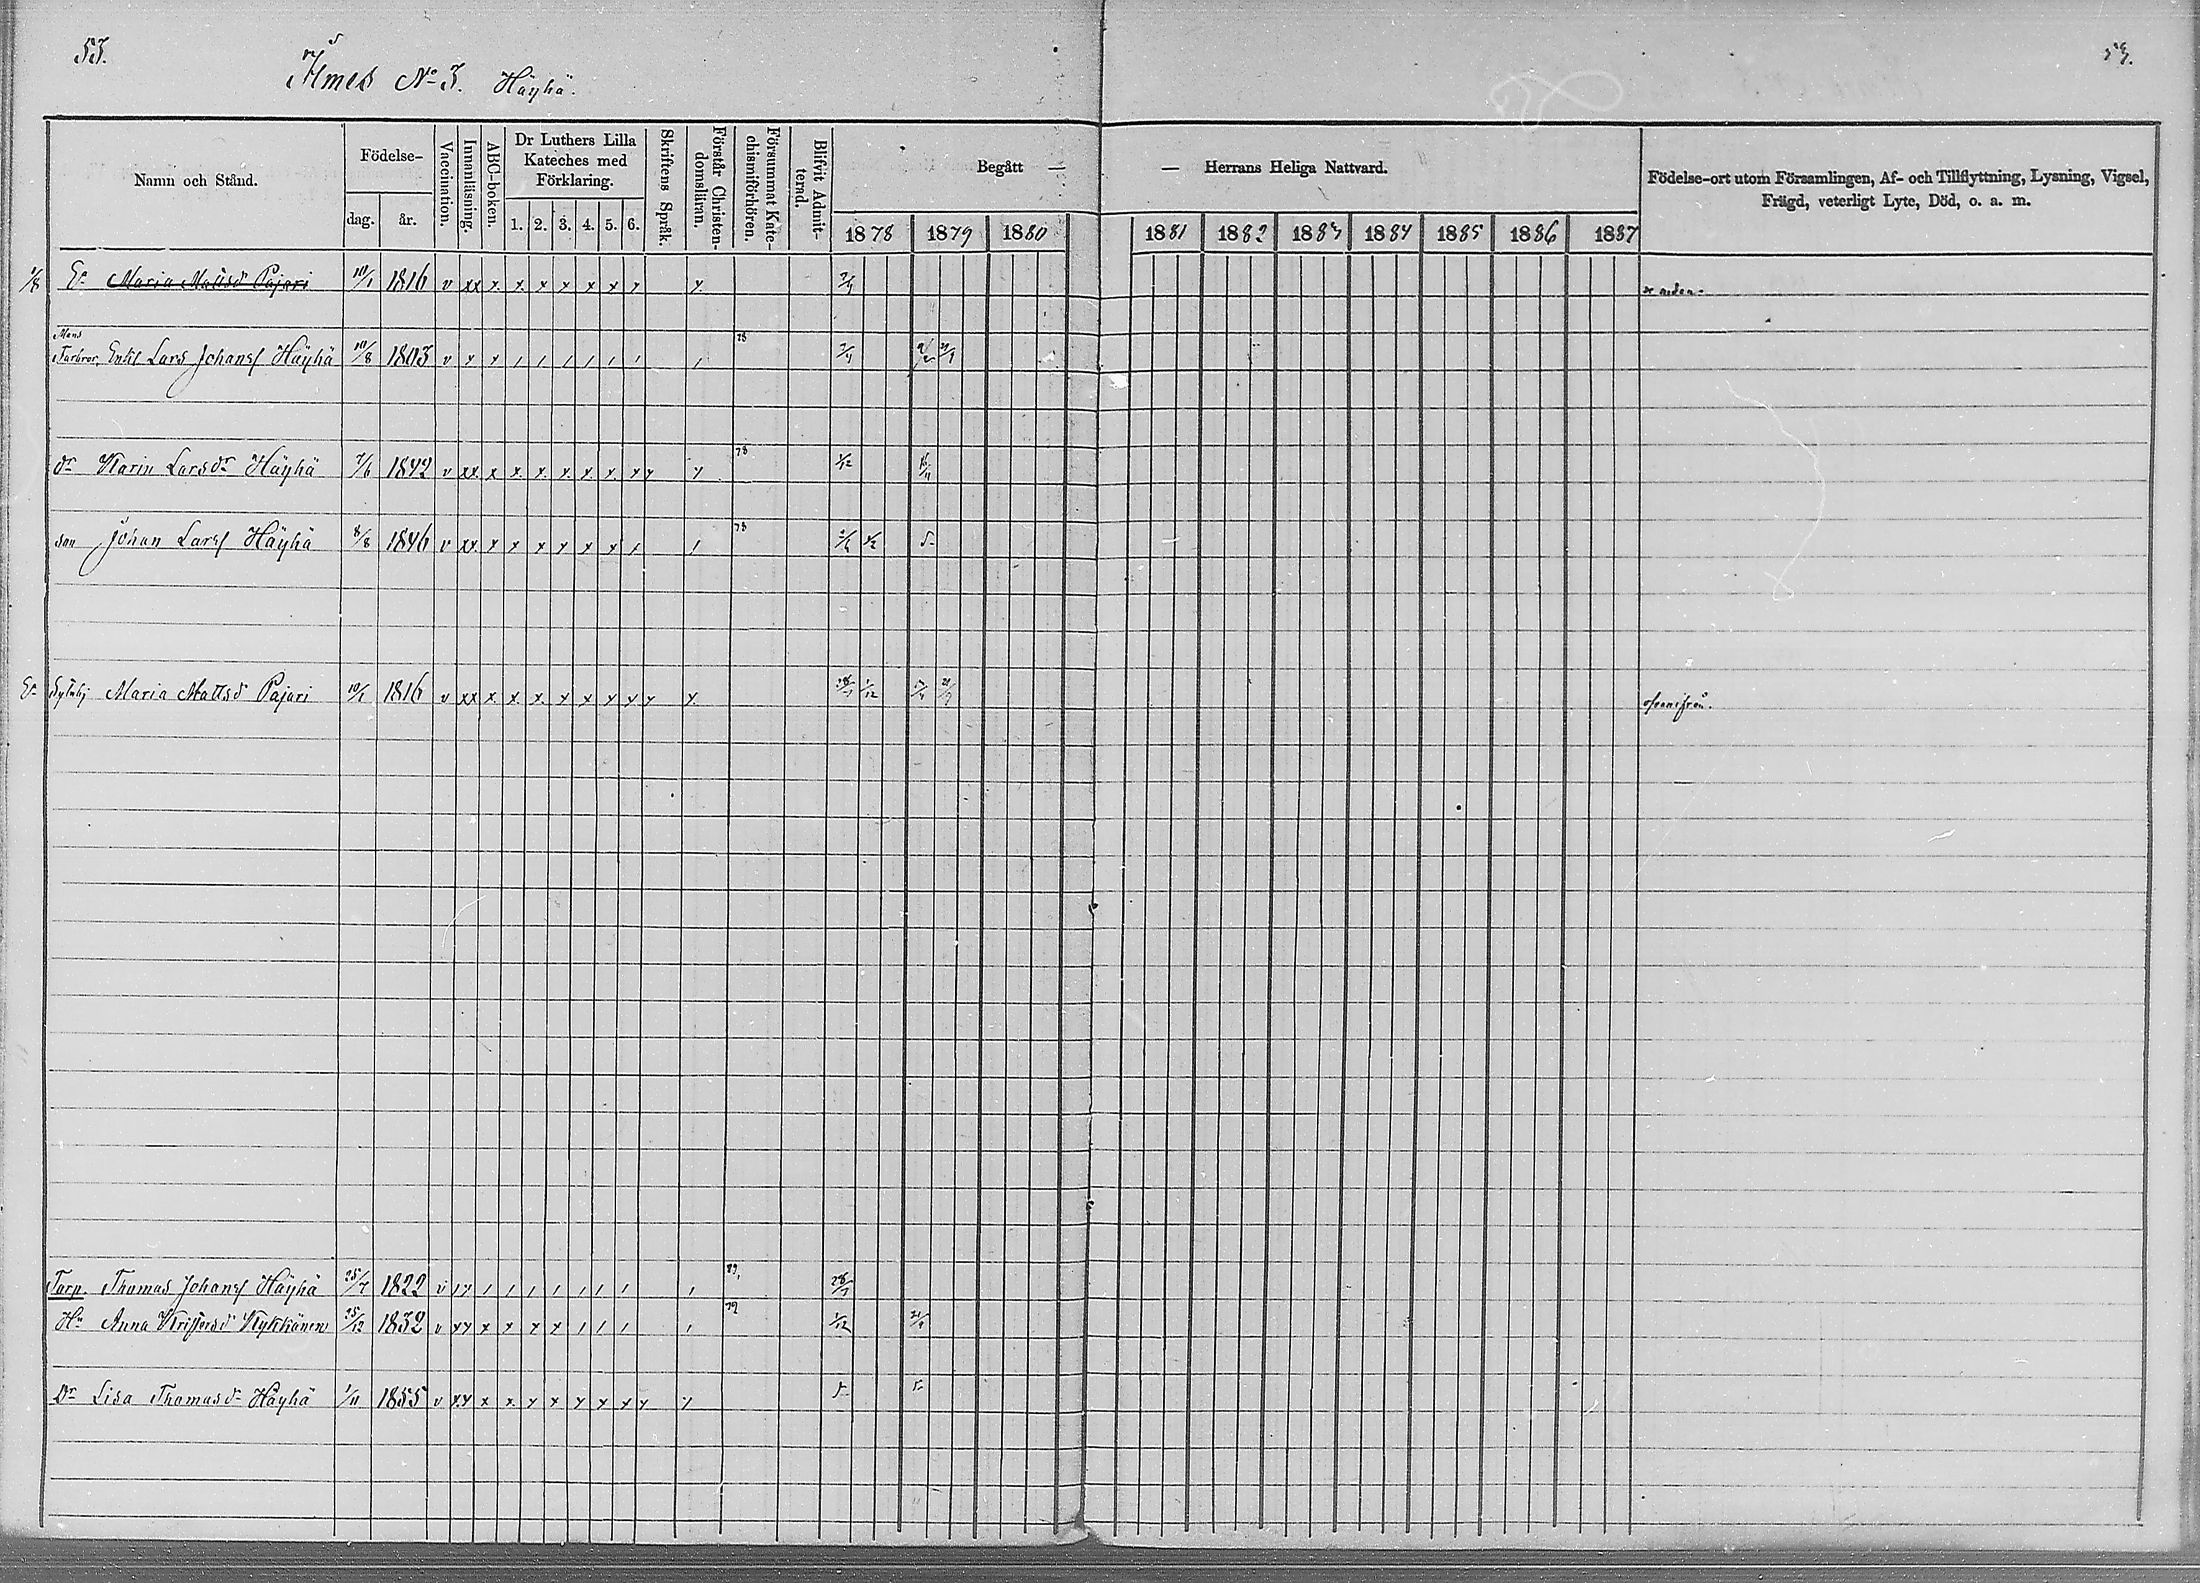 53.
53.
Ilmes No 3. Häyhä.
Namn och Stånd.
Födelse-
dag.
år.
Vaccination.
Innanläsning.
ABC-boken.
Dr Luthers Lilla
Kateches med
Förklaring.
1. 2. 3. 4. 5. 6.
Skriftens Språk.
Förstår Christen-
domsläran.
Försummat Kate-
chismiförhören.
Blifvit Admit-
terad.
Begått —
— Herrans Heliga Nattvard.
1878 1879 1880
1881 1882 1883 1884 1885 1886 1887
Födelse-ort utom Församlingen, Af- och Tillflyttning, Lysning, Vigsel,
Frägd, veterligt Lyte, Död, o. a. m.
Ea Maria Mattsdr Pajari 10/1 1816 v xx x x x x x x x x
se nedan.
Mans
Farbror, Enkl Lars Johansf Häyhä 10/8 1803 v x x / / / / / / / 78
dr Karin Larsdr Häyhä 7/6 1842 v xx x x x x x x x x x 78 1/12
son Johan Larsf Häyhä 8/8 1846 v xx x x x x x x x / 78
Ea Maria Mattsdr Pajari 10/1 1816 v xx x x x x x x x x x
ofvanifrån.
Torp. Thomas Johansf Häyhä 25/7 1822 v / / / / / / /
Hu Anna Kristersdr Kykkänen 25/12 1832 v xx x x x x / / / / 79 1/12
Dr Lisa Thomasdr Häyhä 1/11 1855 v xx x x x x x x x x x